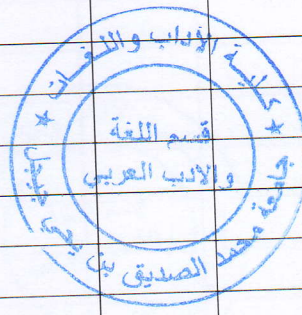 كلية الآداب واللغات
قسم اللغة
والأدب العربي
جامعة محمد الصديق بن يحيى جيجل